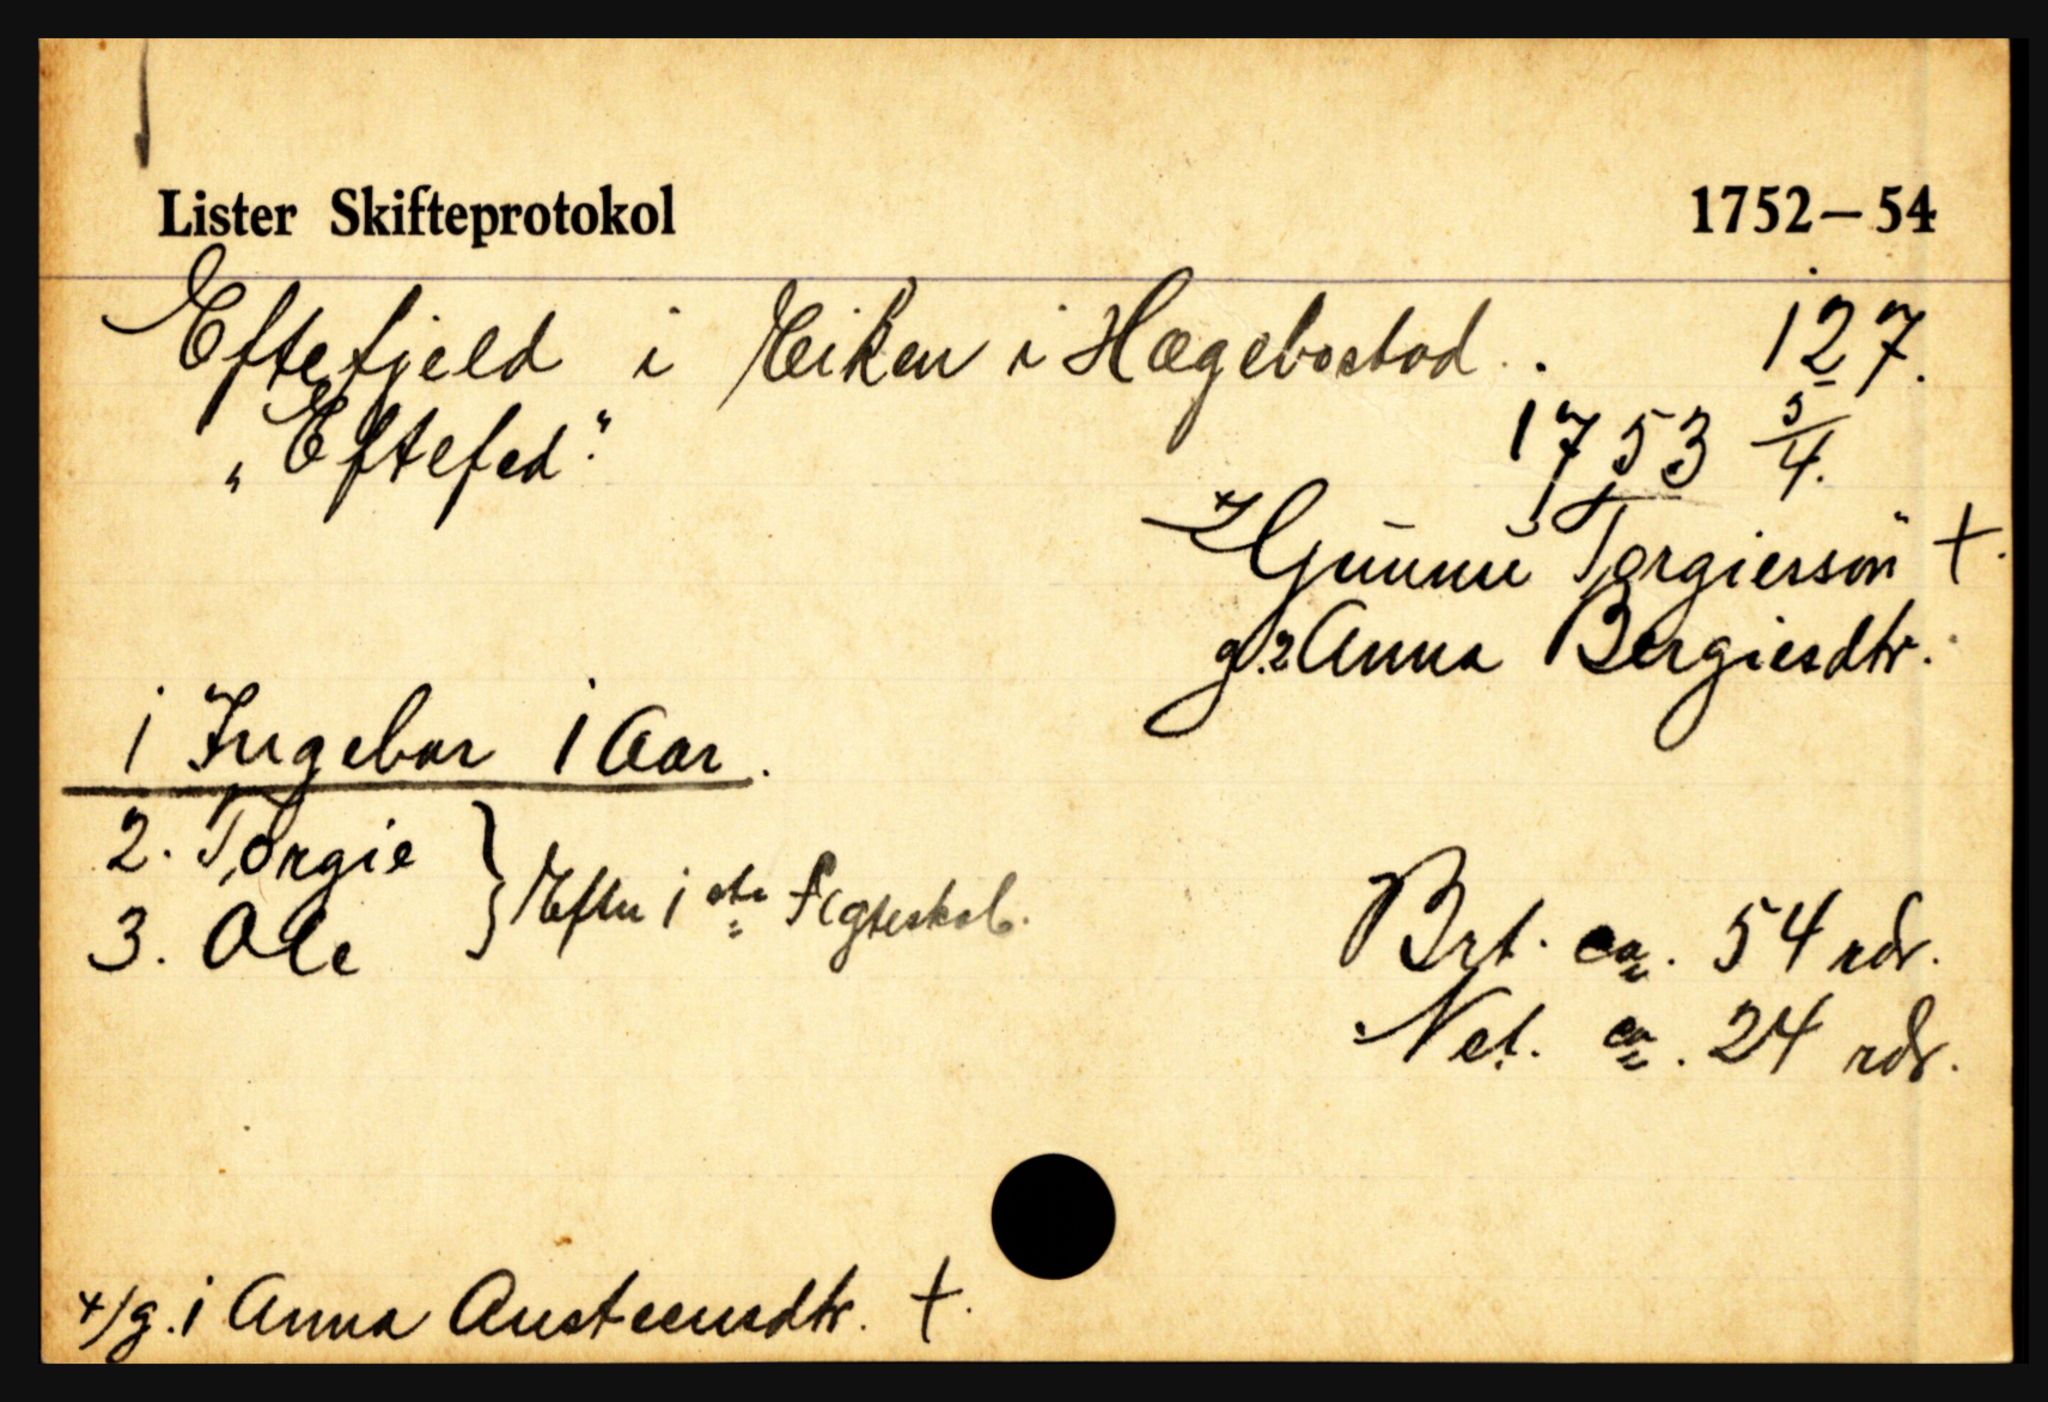 Lister Skifteprotokol 1752–54
Eftefjeld i Eiken i Hægebostad. 127.
„Eftefed." 1753 5/4.
+/ Gunnu Torgiersøn +.
g. 2 Anna Bergiesdtr.
1 Ingebor 1 Aar.
2. Torgie
3. Ole } Efter 1ste Ægteskab.
Brt. ca. 54 rdr.
Net. ca. 24 rdr.
+/ g. 1 Anna Austeensdtr. +.